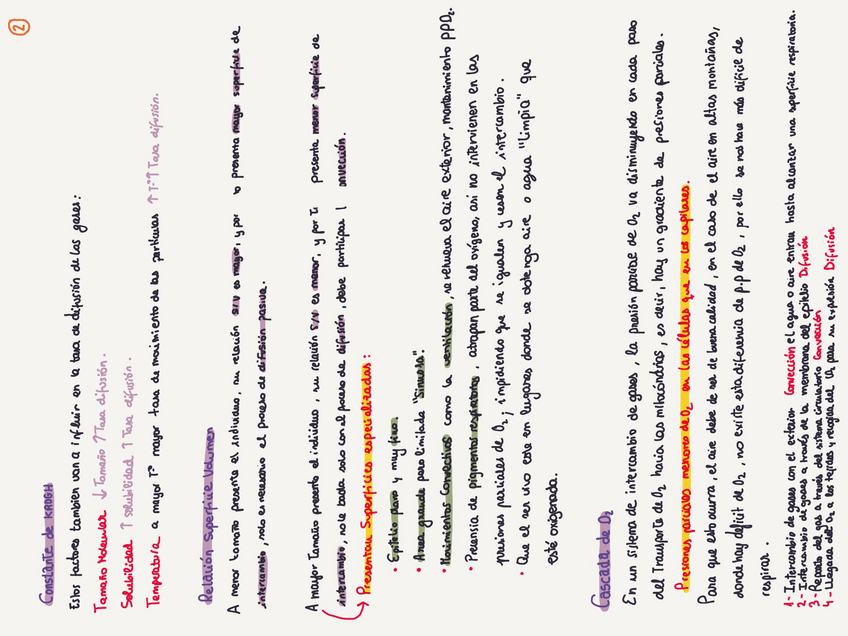 2
Constante de KROGH
Estos factores tambien van a influir en la tasa de difusión de los gases:
Tamaño Molecular ↓ Tamaño ↑ Tasa difusión.
Solubilidad ↑ solubilidad ↑ Tasa difusión.
Temperatura a mayor Tº mayor tasa de movimiento de las partículas ↑Tº↑Tasa difusión.
Relación Superficie Volumen
A menor tamaño presente el individuo, su relación S/V es mayor, y por lo presenta mayor superficie de
intercambio, solo es necesario el proceso de difusión pasiva.
A mayor Tamaño presente el individuo, su relación S/V es menor, y por presenta menor superficie de
intercambio, no le basta solo con el proceso de difusión, debe participar convección.
→ Presentan Superficies especializadas:
• Epitelio plano y muy fino.
• Area grande pero limitada "Sinuosa".
• Movimientos Convectivos como la ventilación, se renueva el aire exterior, mantenimiento ppO₂.
• Presencia de pigmentos respiratorios, atrapan parte del oxígeno, así no intervienen en las
presiones parciales de O₂; impidiendo que se igualen y cesen el intercambio.
• Que el ser vivo este en lugares donde se obtenga aire o agua "limpia" que
esté oxigenada.
Cascada de O₂
En un sistema de intercambio de gases, la presión parcial de O₂ va disminuyendo en cada paso
del transporte de O₂ hacia las mitocondrias, es decir, hay un gradiente de presiones parciales.
Presiones parciales menores de O₂ en las células que en los capilares.
Para que esto ocurra, el aire debe de ser de buena calidad, en el caso de el aire en altas montañas,
donde hay déficit de O₂, no existe esta diferencia de p.p de O₂, por ello se nos hace más difícil de
respirar.
1- Intercambio de gases con el exterior Convección el agua o aire entran hasta alcanzar una superficie respiratoria.
2- Intercambio de gases a través de la membrana del epitelio Difusión
3- Reparto del gas a través del sistema circulatorio Convección
4- Llegada del O₂ a los tejidos y recogida del O₂ para su Difusión